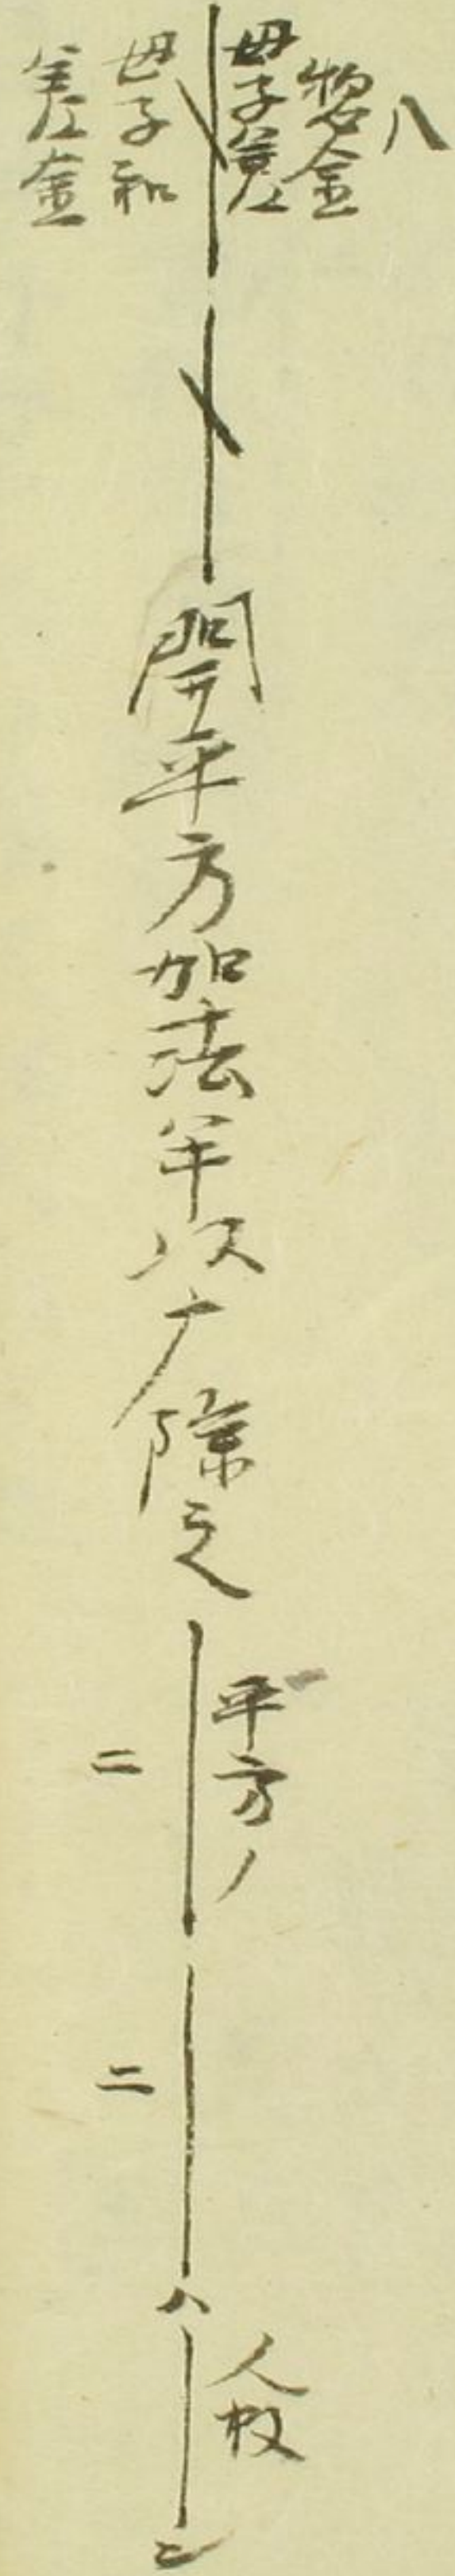 八
惣金
母子差
母子和
差金
開平方加法半以广除之
平方ノ
二
二
ハ
人枚
ニ